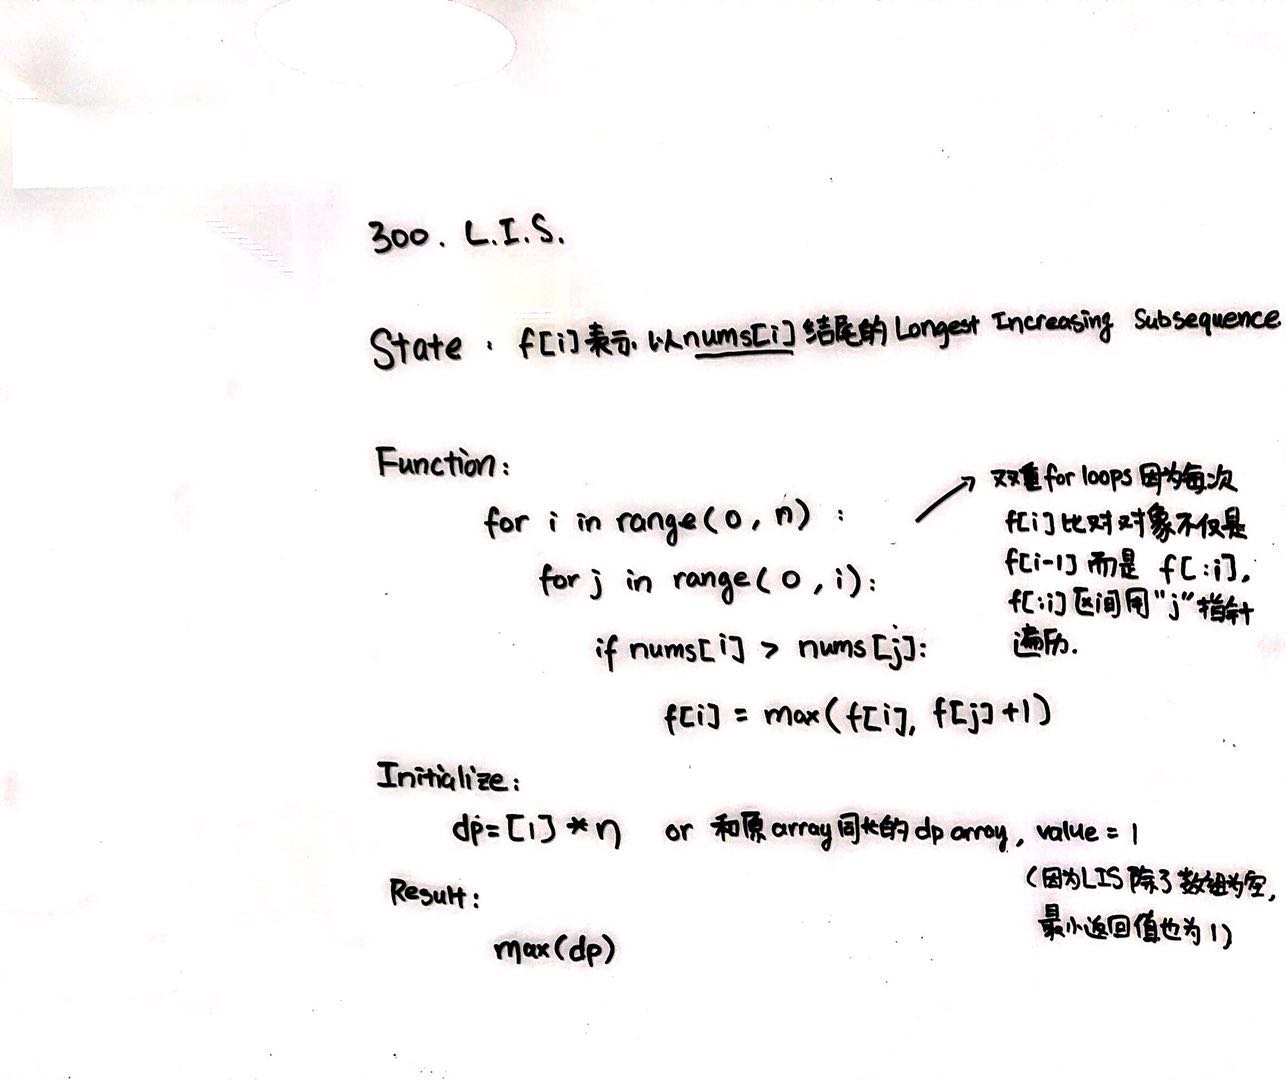 300. L.I.S.
State: f[i]表示以nums[i]结尾的Longest Increasing Subsequence
Function:
for i in range(0, n):
for j in range(0, i):
if nums[i] > nums[j]:
f[i] = max(f[i], f[j]+1)
双重for loops因为每次
f[i]比对对象不仅是
f[i-1]而是 f[:i],
f[:i]区间用"j"指针
遍历.
Initialize:
dp=[1]*n or 和原array同长的dp array, value = 1
(因为LIS除了数组为空,
最小返回值也为1)
Result:
max(dp)